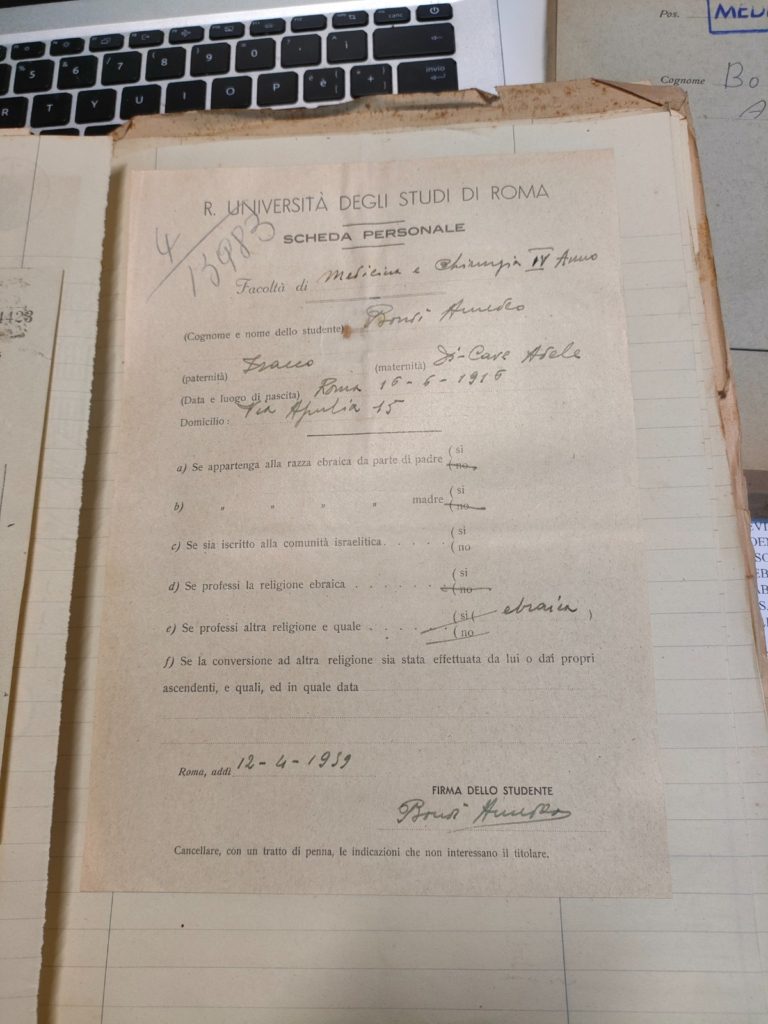 Pos.
MED
Cognome Bo
A
canc
invio
5 6 7 8 9 0 ' ì
R T Y U I O P è +
4423
R. UNIVERSITÀ DEGLI STUDI DI ROMA
4/13983
SCHEDA PERSONALE
Facoltà di Medicina e Chirurgia IV Anno
(Cognome e nome dello studente) Bondì Amedeo
(paternità) Isacco (maternità) Di-Cave Adele
(Data e luogo di nascita) Roma 16-6-1916
Domicilio: Via Apulia 15
a) Se appartenga alla razza ebraica da parte di padre (si
(no
b) " " " " madre (si
(no
c) Se sia iscritto alla comunità israelitica . . . . . (si
(no
d) Se professi la religione ebraica . . . . . . . (si
(no
e) Se professi altra religione e quale . . . . . (si ( ebraica )
(no
f) Se la conversione ad altra religione sia stata effettuata da lui o dai propri
ascendenti, e quali, ed in quale data
Roma, addì 12-4-1939
FIRMA DELLO STUDENTE
Bondì Amedeo
Cancellare, con un tratto di penna, le indicazioni che non interessano il titolare.